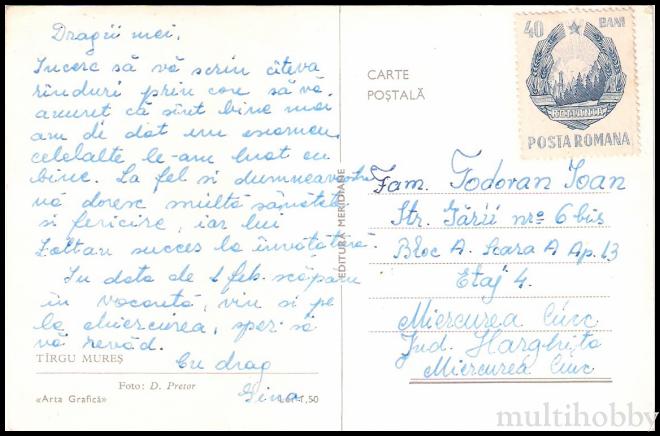 Dragii mei,
Încerc să vă scriu cîteva
rînduri prin care să vă
anunț că sînt bine mai
am de dat un examen,
celelalte le-am luat cu
bine. La fel si dumneavoastră
vă doresc multă sănătate
si fericire, iar lui
Zoltan succes la învățătură.
În data de 1 feb. scăpăm
în vacantă, viu si pe
la Miercurea, sper să
vă revăd.
Cu drag
Gina
TÎRGU MUREȘ
Foto: D. Pretor
«Arta Grafică»
Lei 1,50
EDITURA MERIDIANE
CARTE
POȘTALĂ
40 BANI
POSTA ROMANA
Fam. Todoran Ioan
Str. Gării nro 6 bis
Bloc A. Scara A Ap. 13
Etaj 4.
Miercurea Ciuc
Jud. Harghita
Miercurea Ciuc
multihobby